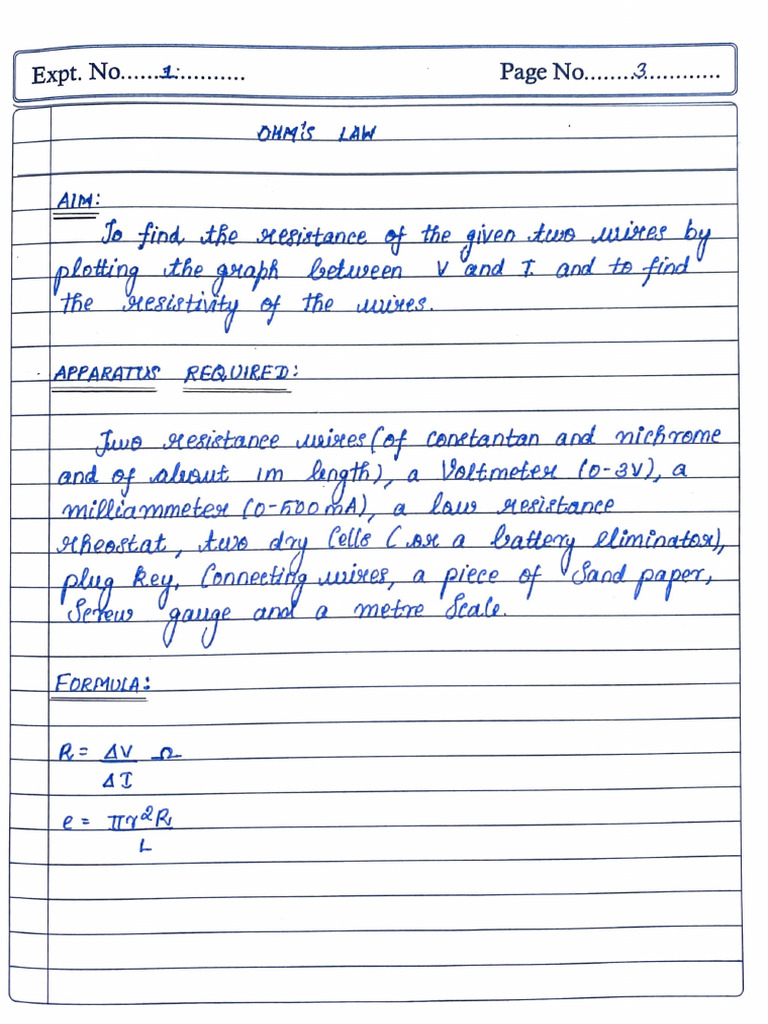 Expt. No......1:...........
Page No........3...........
OHM'S LAW
AIM:
To find the resistance of the given two wires by
plotting the graph between V and I. and to find
the resistivity of the wires.
APPARATUS REQUIRED:
Two resistance wires (of constantan and nichrome
and of about 1m length), a Voltmeter (0-3V), a
milliammeter (0-500mA), a low resistance
rheostat, two dry Cells (or a battery eliminator),
plug key, Connecting wires, a piece of Sand paper,
Screw gauge and a metre Scale.
FORMULA:
R = ΔV Ω
ΔI
e = πr²R
L